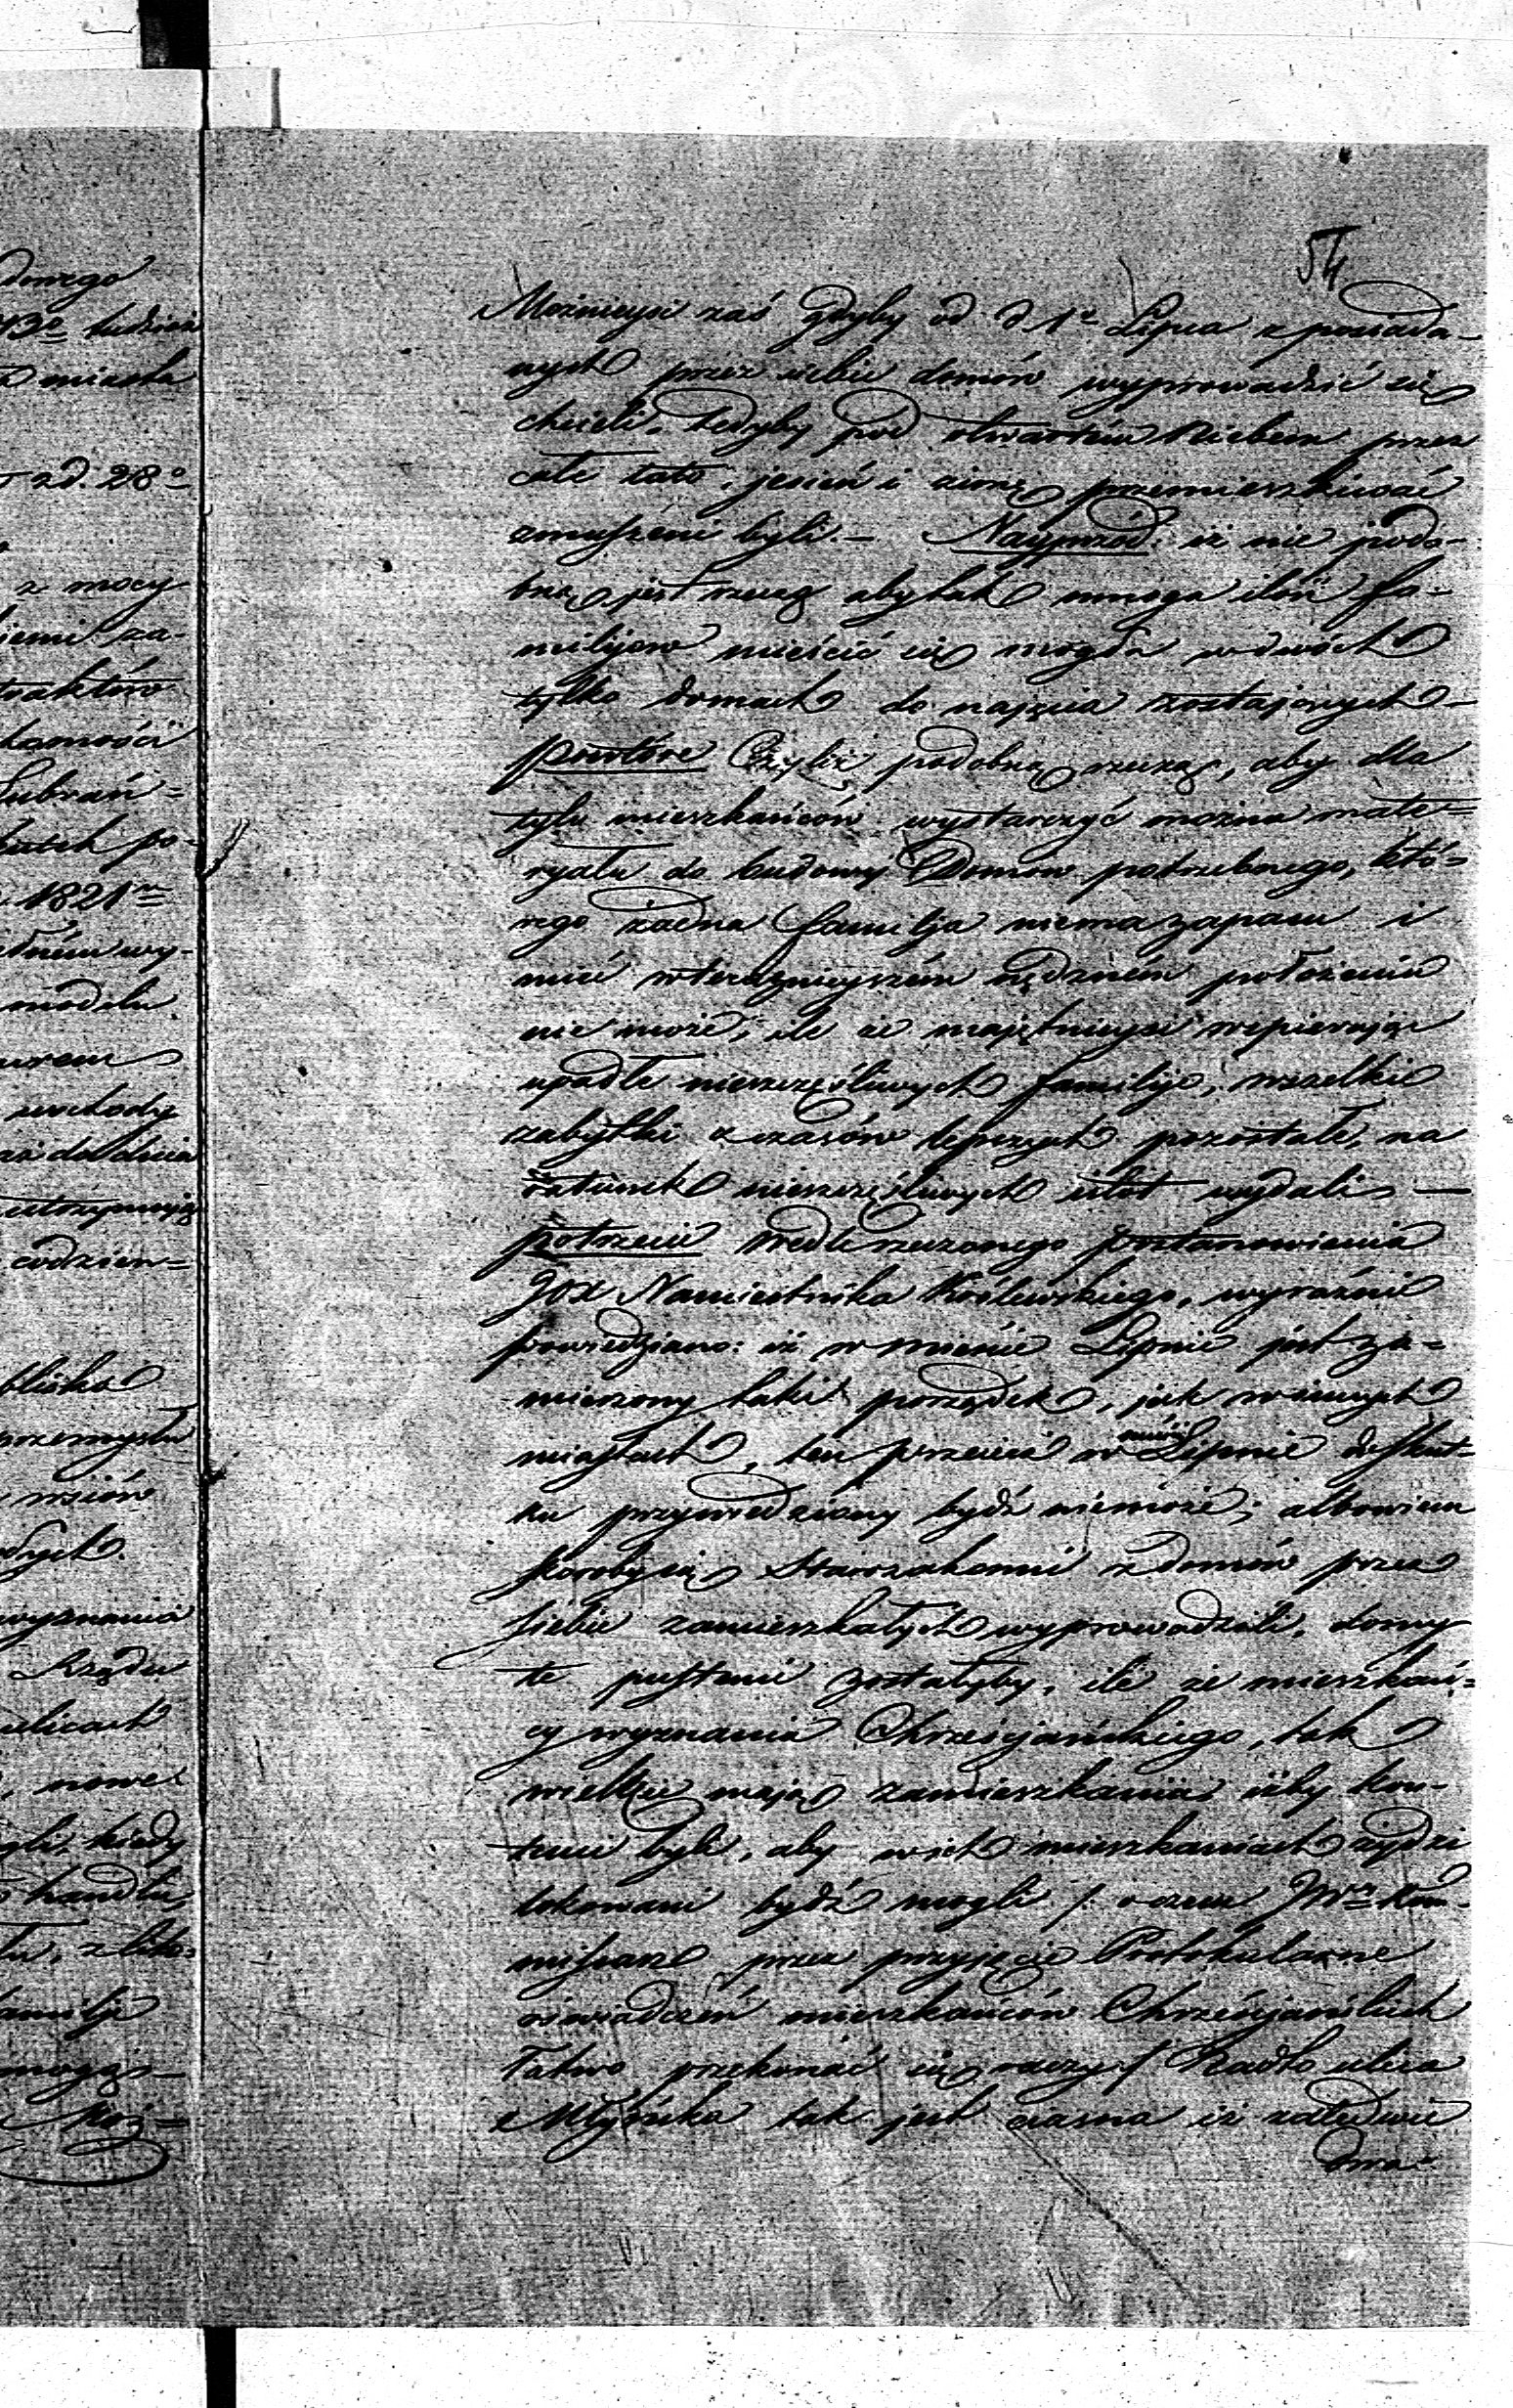 donego
43º tudzież
miasta
z d. 28º
z mocy
jemi za-
traktów
Lubrań=
po-
1821
wy-
modelu
wchodzą
aż do dnia
utrzymują
codzien=
bliska
przemysłu
wsiów
wyznania
Rządu
ulicach
nowe
kiedy
handlu,
familji
mogą –
Moż=
54
Możnieysi zaś gdyby od d 1º Lipca z posiada-
nych przez siebie domów wyprowadzić się
chcieli, tedyby pod otwartém Niebem przez
całe lato, jesień i zimę przemieszkiwać
zmuszeni byli. – Nayprzód: iż nie podo-
bną jest rzeczą aby tak mnoga ilość fa-
milijow mieścić się mogła w dwóch
tylko domach do najęcia zostających –
powtóre Czyliż podobną rzeczą, aby dla
tylu mieszkańców wystarczyć można mate=
ryału do budowy Domow potrzebnego, któ=
rego żadna familja niema zapasu i
mieć w teraznieyszém nędzném położeniu
nie może, ile że majętnieysi wspierając
upadłe nieszczęśliwych familije, wszelkie
zabytki z czasów lepszych pozostałe, na
ratunek nieszczęśliwych istot wydali –
potrzecie wedle rzeczonego postanowienia
JOX Namiestnika Królewskiego, wyraźnie
powiedziano: iż w mieście Lipnie jest za=
mierzony taki porządek, jak w innych
miastach, ten przecież w mieście Lipnie do skut=
ku przywiedziony bydź niemoże; albowiem
skoroby się Starozakonni z domów przez
siebie zamieszkałych wyprowadzili, domy
te pustemi zostałyby, ile że mieszkań=
cy wyznania Chrześcijańskiego, tak
wielkie mają zamieszkania, iżby kon-
tenci byli, aby w ich mieszkaniach żydzi
lokowani bydź mogli /: o czem JWny Kom-
missarz przez przyjęcie Protokularne
oświadczeń mieszkańców Chrześcijańskich
łatwo przekonać się raczy :/ Nadto ulica
Młyńska tak jest ciasna iż zaledwie
dwa